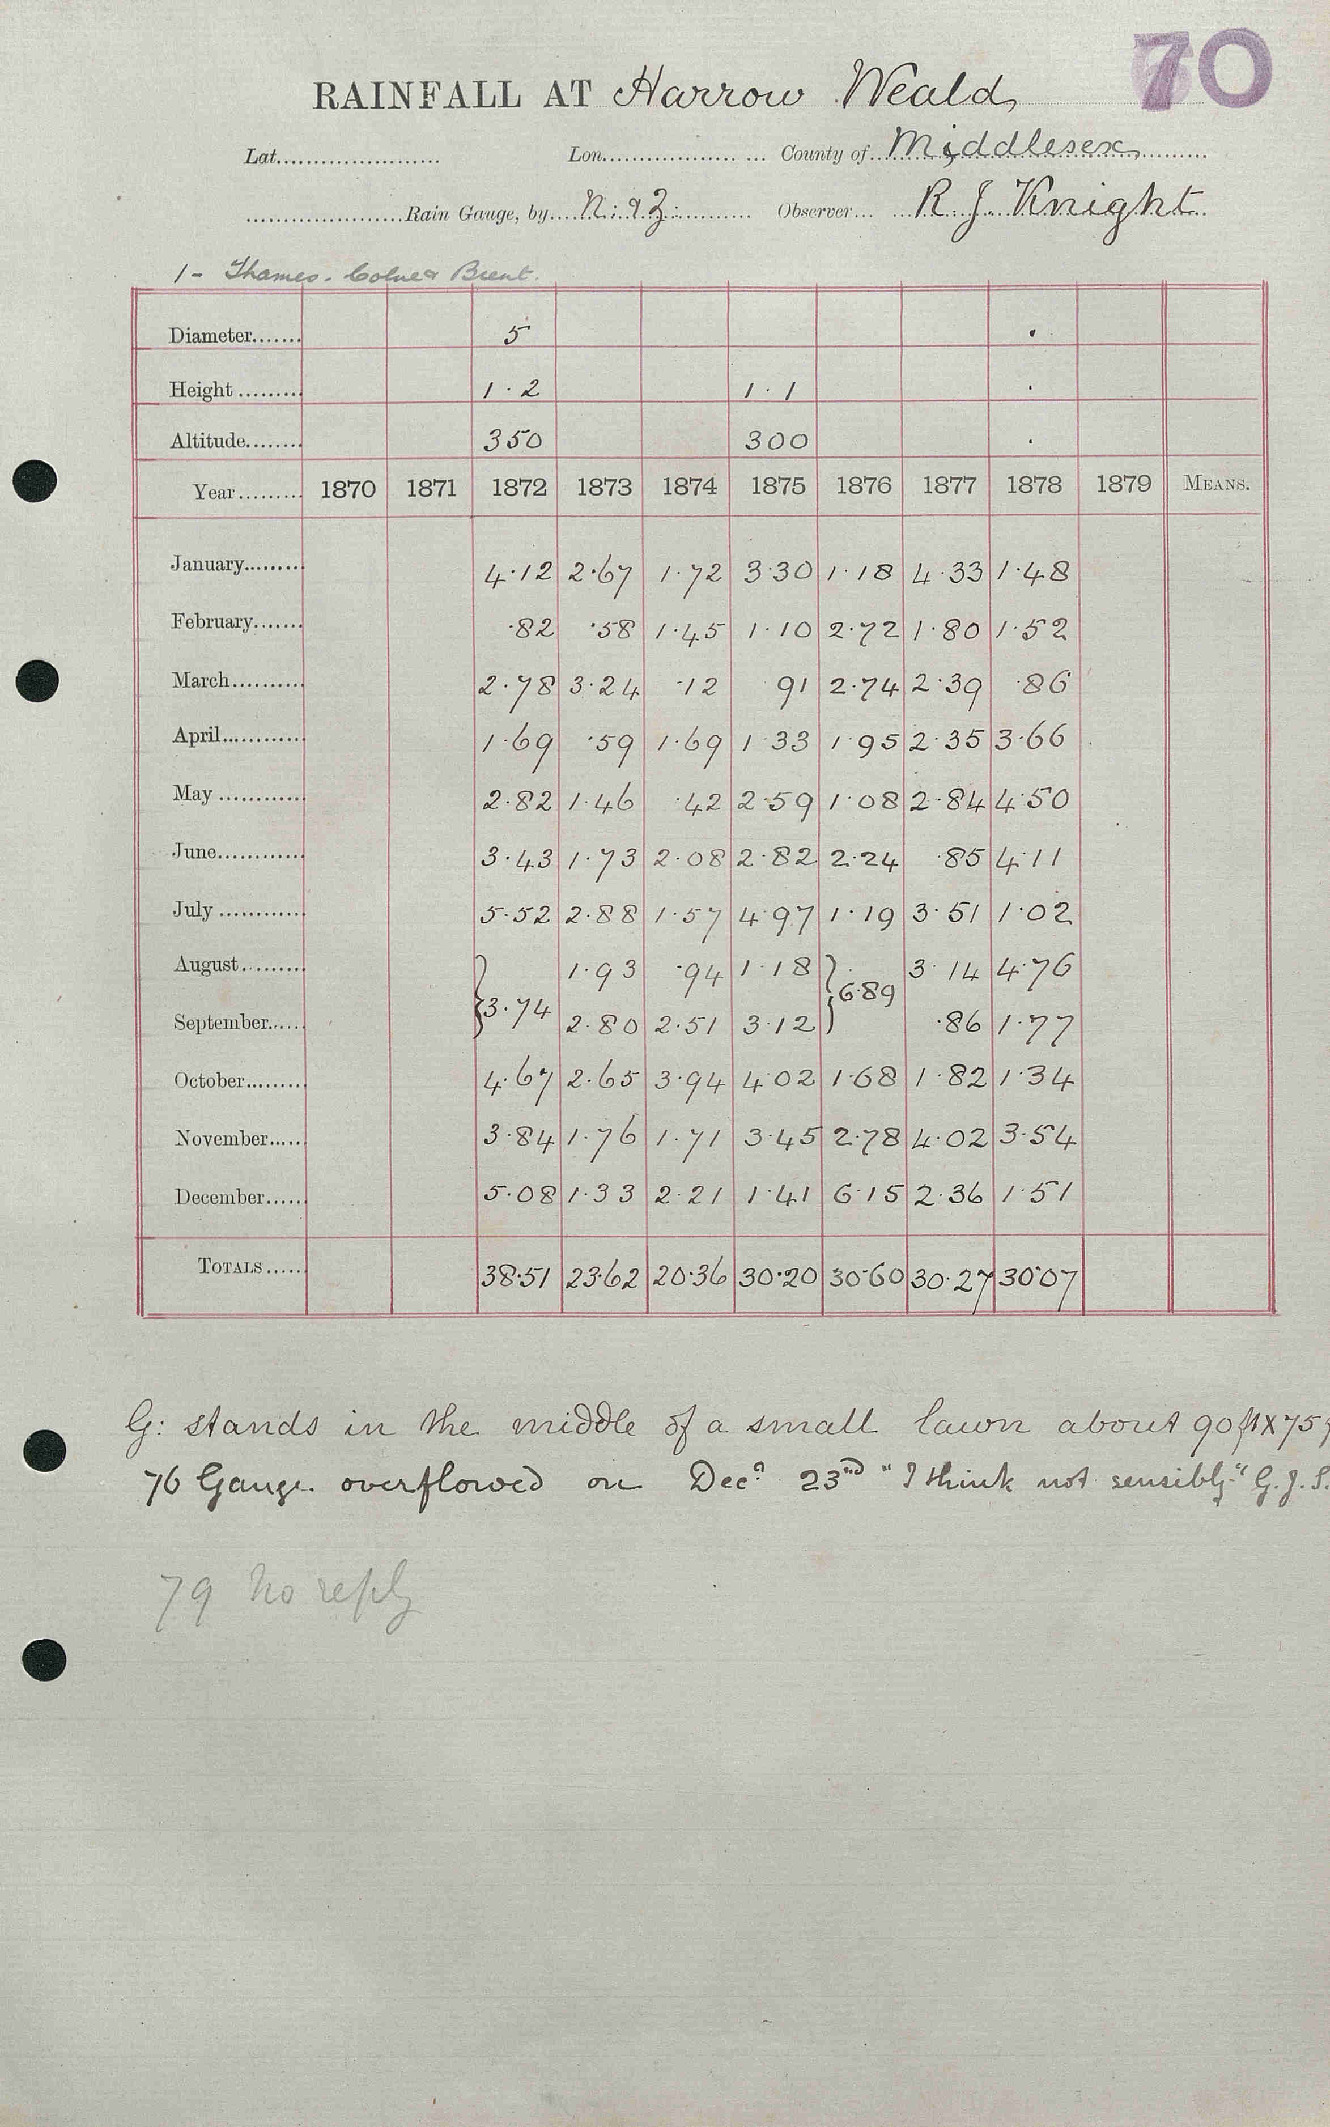 70
RAINFALL AT Harrow Weald
Lat. Lon. County of Middlesex
Rain Gauge, by N. & Z. Observer R J Knight
1 - Thames. Colne & Brent.
Diameter 5
Height 1.2 1.1
Altitude 350 300
Year 1870 1871 1872 1873 1874 1875 1876 1877 1878 1879 MEANS.
January 4.12 2.67 1.72 3.30 1.18 4.33 1.48
February .82 .58 1.45 1.10 2.72 1.80 1.52
March 2.78 3.24 .12 91 2.74 2.39 .86
April 1.69 .59 1.69 1.33 1.95 2.35 3.66
May 2.82 1.46 .42 2.59 1.08 2.84 4.50
June 3.43 1.73 2.08 2.82 2.24 .85 4.11
July 5.52 2.88 1.57 4.97 1.19 3.51 1.02
August } 1.93 .94 1.18 } 3.14 4.76
3.74 6.89
September 2.80 2.51 3.12 .86 1.77
October 4.67 2.65 3.94 4.02 1.68 1.82 1.34
November 3.84 1.76 1.71 3.45 2.78 4.02 3.54
December 5.08 1.33 2.21 1.41 6.15 2.36 1.51
TOTALS 38.51 23.62 20.36 30.20 30.60 30.27 30.07
G: stands in the middle of a small lawn about 90 ft X 75 f
76 Gauge overflowed on Decr 23rd "I think not sensibly" G. J. S.
79 No reply